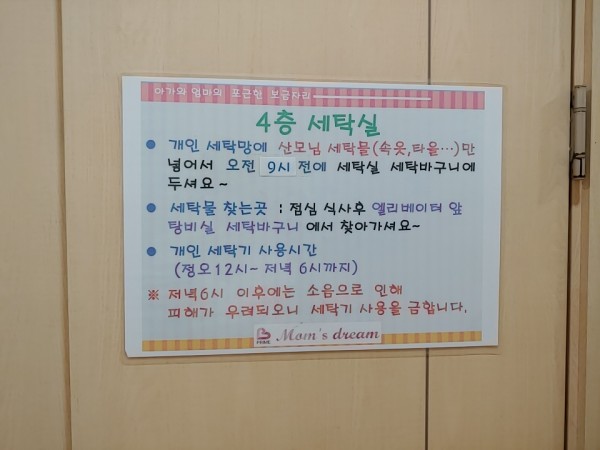 아가와 엄마의 포근한 보금자리
4층 세탁실
● 개인 세탁망에 산모님 세탁물(속옷,타올…)만
넣어서 오전 9시 전에 세탁실 세탁바구니에
두셔요~
● 세탁물 찾는곳 : 점심 식사후 엘리베이터 앞
탕비실 세탁바구니 에서 찾아가셔요~
● 개인 세탁기 사용시간
(정오12시~저녁 6시까지)
※ 저녁6시 이후에는 소음으로 인해
피해가 우려되오니 세탁기 사용을 금합니다.
Mom's dream